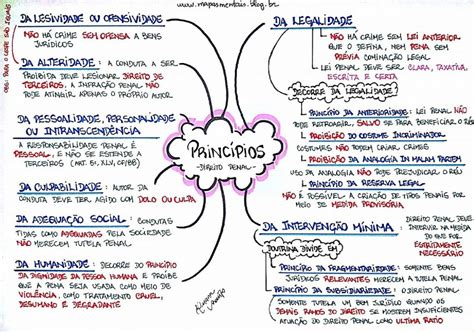 www.mapasmentais.blog.br
DA LESIVIDADE OU OFENSIVIDADE
NÃO HÁ CRIME SEM OFENSA A BENS
JURÍDICOS
DA ALTERIDADE: A CONDUTA A SER
PROIBIDA DEVE LESIONAR DIREITO DE
TERCEIROS, A INFRAÇÃO PENAL NÃO
PODE ATINGIR APENAS O PRÓPRIO AUTOR
DA PESSOALIDADE, PERSONALIDADE
OU INTRANSCENDÊNCIA
A RESPONSABILIDADE PENAL É
PESSOAL, E NÃO SE ESTENDE A
TERCEIROS (ART. 5º, XLV, CF/88)
DA CULPABILIDADE: AUTOR DA
CONDUTA DEVE TER AGIDO COM DOLO OU CULPA
DA ADEQUAÇÃO SOCIAL: CONDUTAS
TIDAS COMO ADEQUADAS PELA SOCIEDADE
NÃO MERECEM TUTELA PENAL
DA HUMANIDADE: DECORRE DO PRINCÍPIO
DA DIGNIDADE DA PESSOA HUMANA E PROÍBE
QUE A PENA SEJA USADA COMO MEIO DE
VIOLÊNCIA, COMO TRATAMENTO CRUEL,
DESUMANO E DEGRADANTE
PRINCÍPIOS
- DIREITO PENAL -
DA LEGALIDADE
NÃO HÁ CRIME SEM LEI ANTERIOR
QUE O DEFINA, NEM PENA SEM
PRÉVIA COMINAÇÃO LEGAL
LEI PENAL DEVE SER CLARA, TAXATIVA,
ESCRITA E CERTA
DECORRE DA LEGALIDADE
PRINCÍPIO DA ANTERIORIDADE: LEI PENAL NÃO
PODE RETROAGIR, SALVO SE PARA BENEFICIAR O RÉU
PROIBIÇÃO DO COSTUME INCRIMINADOR
COSTUMES NÃO PODEM CRIAR CRIMES
PROIBIÇÃO DA ANALOGIA IN MALAM PARTEM
USO DA ANALOGIA NÃO PODE PREJUDICAR O RÉU
PRINCÍPIO DA RESERVA LEGAL
NÃO É POSSÍVEL A CRIAÇÃO DE TIPOS PENAIS POR
MEIO DE MEDIDA PROVISÓRIA
DA INTERVENÇÃO MÍNIMA: DIREITO PENAL DEVE
INTERVIR NA MEDIDA
DO QUE FOR
ESTRITAMENTE
NECESSÁRIO
DOUTRINA DIVIDE EM
PRINCÍPIO DA FRAGMENTARIEDADE: SOMENTE BENS
JURÍDICOS RELEVANTES MERECEM A TUTELA PENAL
PRINCÍPIO DA SUBSIDIARIEDADE: O DIREITO PENAL
SOMENTE TUTELA UM BEM JURÍDICO QUANDO OS
DEMAIS RAMOS DO DIREITO SE MOSTREM INSUFICIENTES
ATUAÇÃO DO DIREITO PENAL COMO ULTIMA RATIO